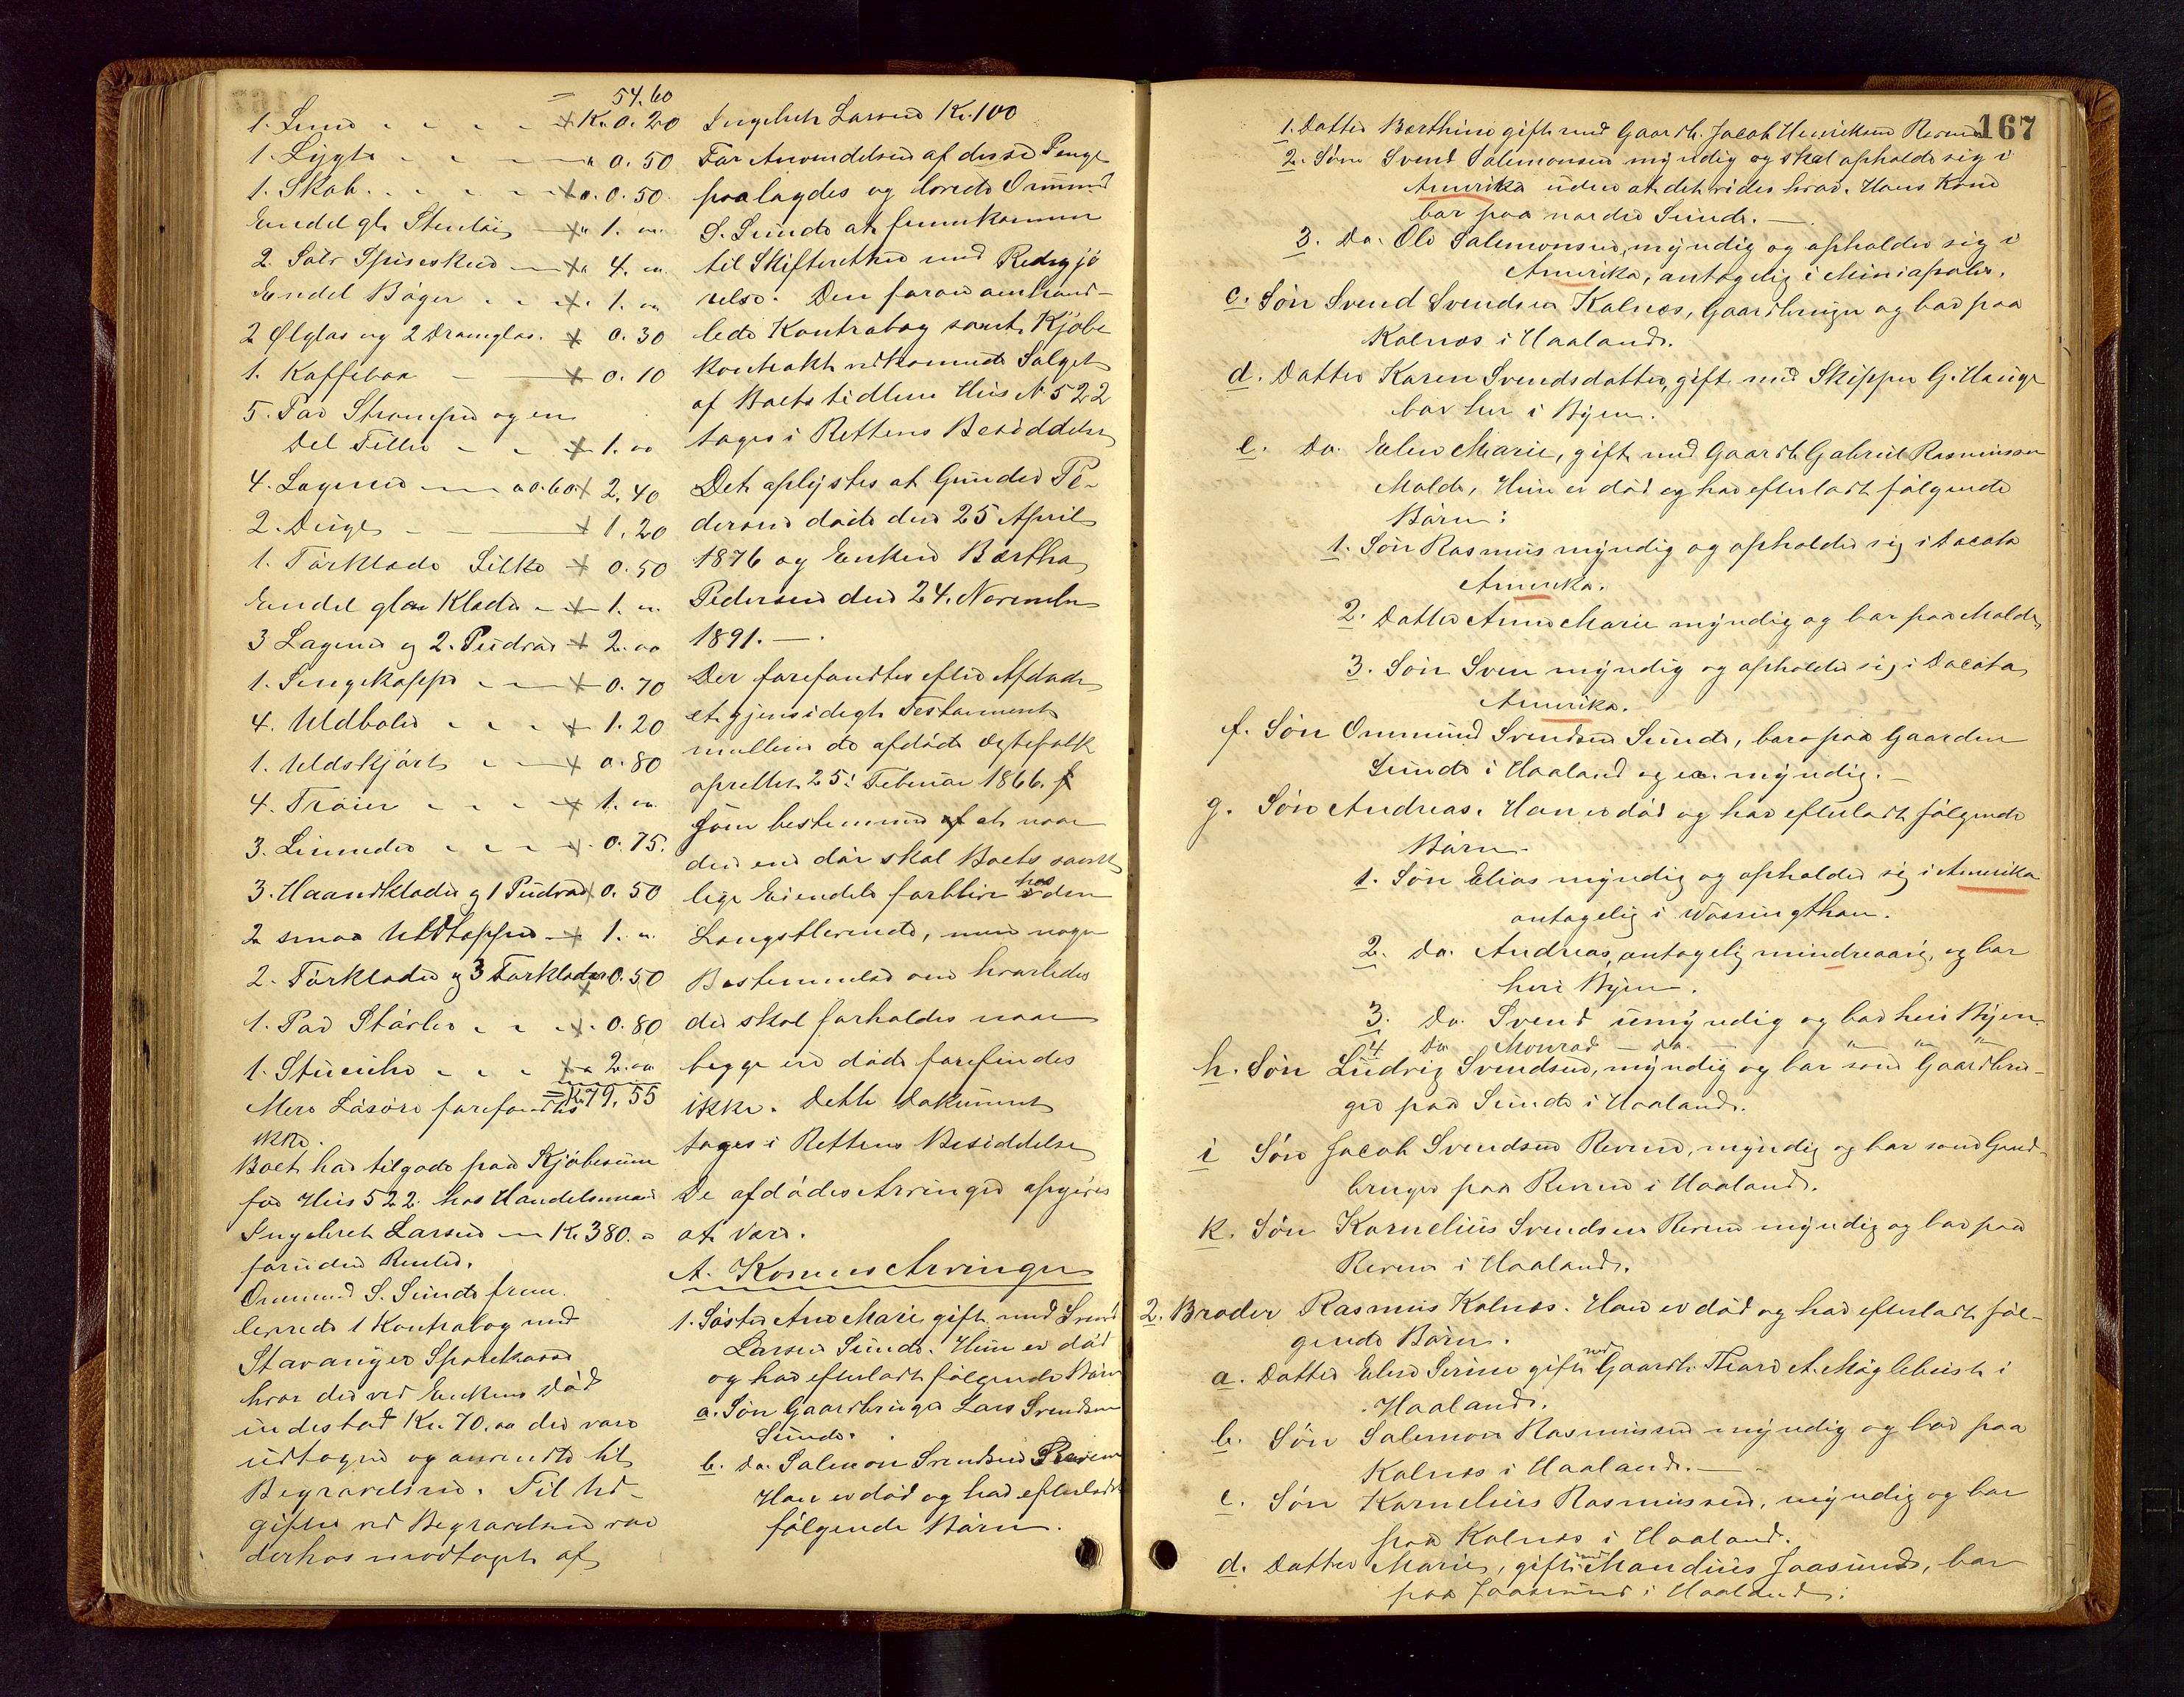 = 54.60
1. Seng - - - - + Kr. 0.20
1. Lygte - - - - " 0.50
1. Skab. - - - - + " 0.50
Endel gl. Stentøi - + " 1. "
2 Sølv Spiseskeer - + " 4. "
Endel Bøger - - + " 1. "
2 Ølglas og 2 Dramglas. + 0.30
1. Kaffebox - + 0.10
5. Par Strømper og en
Del Filler - - + 1. "
4. Lagener - a 0.60 + 2.40
2. Duge - + 1.20
1. Tørklæde Silke + 0.50
Endel gle Klæder - + 1. "
3 Lagener og 2. Pudvar + 2. "
1. Sengekappe - - + 0.70
4. Uldboler - - - + 1.20
1. Uldskjørt - - + 0.80
4. Trøier - - - + 1. "
3. Linneder - - - + 0.75.
3. Haandklæder og 1 Pudvar + 0.50
2 smaa Uldtæpper + 1. "
2. Forklæder og 3 Tørklæder + 0.50
1. Par Støvler - - + 0.80
1. Stueuhr - - - + " 2. "
= Kr. 79.55
Mere Løsøre forefandtes
ikke.
Boet har tilgode paa Kjøbesum
for Hus 522 hos Handelsmand
Ingebret Larsen - Kr. 380. "
foruden Renter.
Ommund S. Sunde frem
leverede 1 Kontrabog med
Stavanger Sparekasse
hvor der ved Enkens Død
indestod Kr. 70. " der vare
udtagne og anvendte til
Begravelsen. Til Ud-
gifter ved Begravelsen var
derhos modtaget af
Ingebret Larsen Kr. 100
For Anvendelsen af disse Penge
paalagdes og lovede Ommund
S. Sunde at fremkomme
til Skifteretten med Redegjø
relse. Den foran omhand-
lede Kontrabog samt Kjøbe
kontrakt vedkommende Salget
af Boets tidligere Hus No 522
toges i Rettens Besiddelse
Det oplystes at Gunder Pe-
dersen døde den 25 April
1876 og Enken Bertha
Pedersen den 24. November
1891. -
Der forefandtes efter Afdøde
et gjensidigt Testament
mellem de afdøde Ægtefolk
oprettet 25. Februar 1866.
som bestemmer at naar
den ene dør skal Boets samt
lige Eiendele forblive hos den
Længstlevende, men nogen
Bestemmelse om hvorledes
der skal forholdes naar
begge ere døde forefindes
ikke. Dette Dokument
toges i Rettens Besiddelse
De afdødes Arvinger opgives
at være.
A. Konens Arvinger
1. Søster Ane Marie gift med Svend
Larsen Sunde. Hun er død
og har efterladt følgende Børn
a. Søn Gaardbruger Lars Svendsen
Sunde.
b. Do. Salemon Svendsen Revem
Han er død og har efterladt
følgende Børn.
167
1. Datter Berthine gift med Gaardb. Jacob Henriksen Reveim
2. Søn Svend Salemonsen myndig og skal opholde sig i
Amerika uden at det vides hvor. Hans Kone
bor paa nordre Sunde. -
3. Do. Ole Salemonsen, myndig og opholder sig i
Amerika, antagelig i Miniapolis.
c. Søn Svend Svendsen Kalnæs, Gaardbruger og bor paa
Kalnæs i Haaland.
d. Datter Karen Svendsdatter, gift med Skipper G. Hauge
bor her i Byen.
e. Do. Elen Marie, gift med Gaardb. Gabriel Rasmussen
Molde, Hun er død og har efterladt følgende
Børn:
1. Søn Rasmus myndig og opholder sig i Dacota
Amerika.
2. Datter Anne Marie myndig og bor paa Molde,
3. Søn Sven myndig og opholder sig i Dacota
Amerika.
f. Søn Ommund Svendsen Sunde, bor paa Gaarden
Sunde i Haaland og er myndig. -
g. Søn Andreas. Han er død og har efterladt følgende
Børn.
1. Søn Elias myndig og opholder sig i Amerika
antagelig i Wassingthon.
2. Do. Andreas, antagelig mindreaarig, og bor
her i Byen.
3. Do. Svend umyndig og bor her i Byen.
4 Do Monrad - do. - " " "
h. Søn Ludvig Svendsen, myndig og bor som Gaardbru-
ger paa Sunde i Haaland.
i Søn Jacob Svendsen Reveim, myndig og bor som Gaard-
bruger paa Reveim i Haaland.
k. Søn Kornelius Svendsen Reveim myndig og bor paa
Reveim i Haaland.
2. Broder Rasmus Kalnæs. Han er død og har efterladt føl-
gende Børn.
a. Datter Elen Serine gift med Gaardb. Thore A. Møglebust i
Haaland.
b. Søn Salemon Rasmussen myndig og bor paa
Kalnæs i Haaland. -
c. Søn Kornelius Rasmussen, myndig og bor
paa Kalnæs i Haaland.
d. Datter Marie, gift med Mandius Jaasund, bor
paa Jaasund i Haaland.